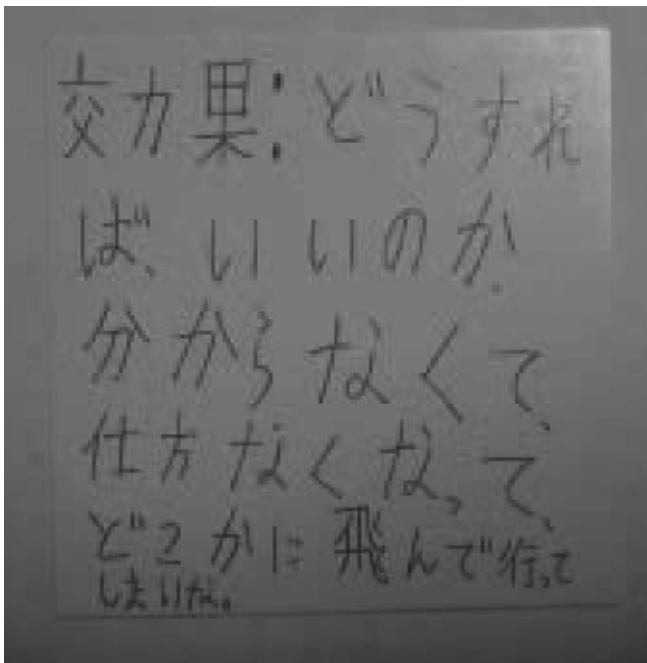 効果:どうすれ
ば、いいのか、
分からなくて、
仕方なくなって、
どこかに飛んで行って
しまいな。